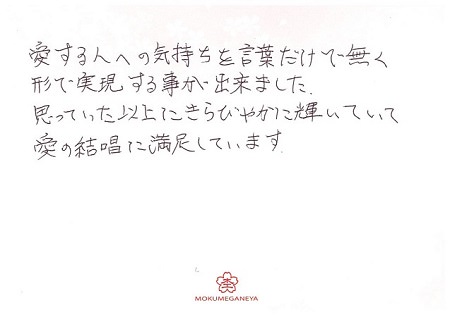 愛する人への気持ちを言葉だけで無く
形で実現する事が出来ました.
思っていた以上にきらびやかに輝いていて
愛の結唱に満足しています.
MOKUMEGANEYA